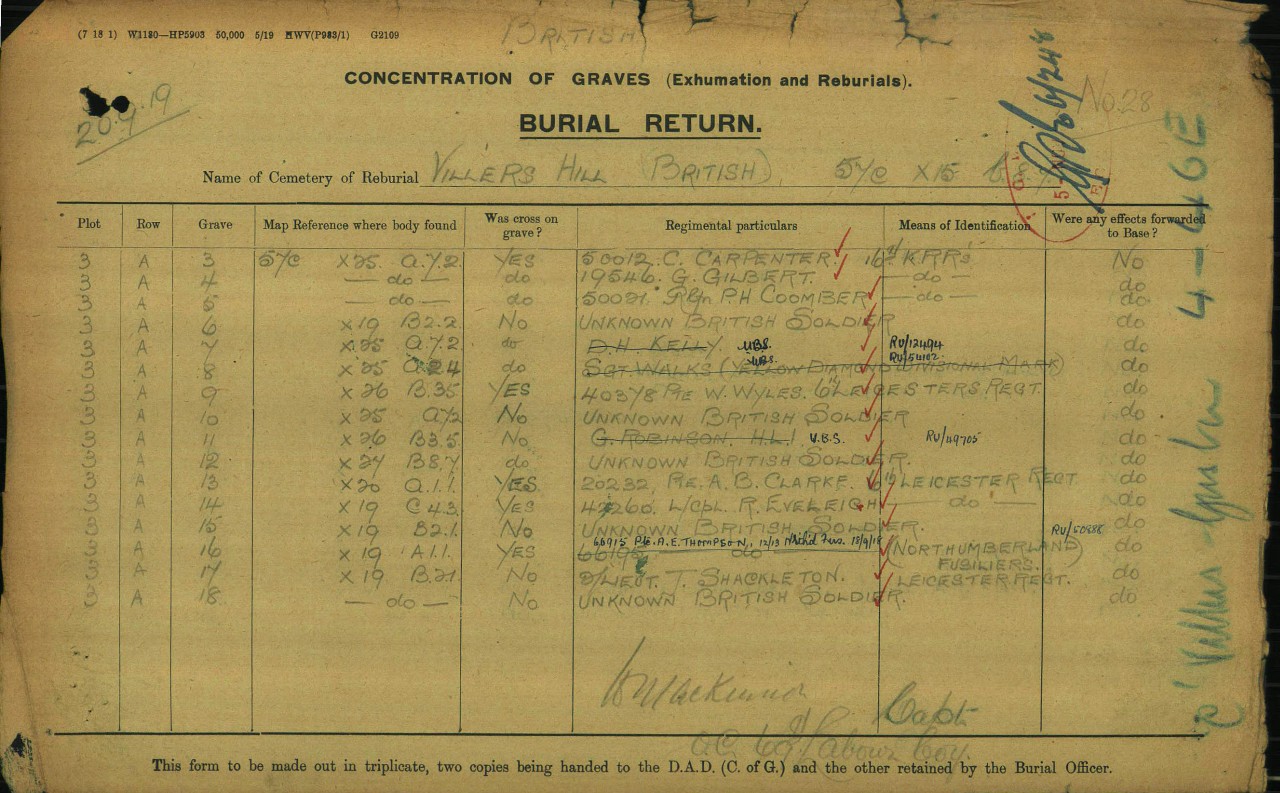 (7 18 1) W1180—HP5903 50,000 5/19 HWV(P983/1) G2109
BRITISH
CONCENTRATION OF GRAVES (Exhumation and Reburials).
No. 28
20.9.19
BURIAL RETURN.
Name of Cemetery of Reburial VILLERS HILL (BRITISH) 57c X15
Plot Row Grave Map Reference where body found Was cross on grave? Regimental particulars Means of Identification Were any effects forwarded to Base?
3 A 3 57c X25 a.7.2 YES 50012 C. CARPENTER. 16th K.R.R's No
3 A 4 — do — do 19546. G. GILBERT. — do — do
3 A 5 — do — do 50021. Rfn P.H COOMBER — do — do
3 A 6 X19 B2.2. No UNKNOWN BRITISH SOLDIER do
3 A 7 X25 a.7.2 do D.H. KELLY. UBS. RU/12494 do
3 A 8 X25 a.24 do SGT WALKS (YELLOW DIAMOND DIVISIONAL MARK) UBS. RU/54102 do
3 A 9 X26 B.35 YES 40378 PTE W. WYLES. 6th LEICESTERS REGT. do
3 A 10 X25 a72 No UNKNOWN BRITISH SOLDIER do
3 A 11 X26 B3.5. No G. ROBINSON. H.L.I U.B.S. RU/49705 do
3 A 12 X27 B8.7. do UNKNOWN BRITISH SOLDIER. do
3 A 13 X20 a.1.1. YES 20232, PTE. A. B. CLARKE. 6th LEICESTER REGT do
3 A 14 X19 C43. YES 47260. L/Cpl. R. EVELEIGH — do — do
3 A 15 X19 B2.1. No UNKNOWN BRITISH SOLDIER. RU/50888 do
3 A 16 X19 A1.1. YES 66195 do 66915 Pte. A.E. THOMPSON, 12/13 Nthld Fus. 18/9/18 (NORTHUMBERLAND FUSILIERS.) do
3 A 17 X19 B.21 No 2/LIEUT. T. SHACKLETON. LEICESTER REGT. do
3 A 18 — do — No UNKNOWN BRITISH SOLDIER. do
W Mackinnon
Capt.
OC Labour Coy.
This form to be made out in triplicate, two copies being handed to the D.A.D. (C. of G.) and the other retained by the Burial Officer.
4—46E